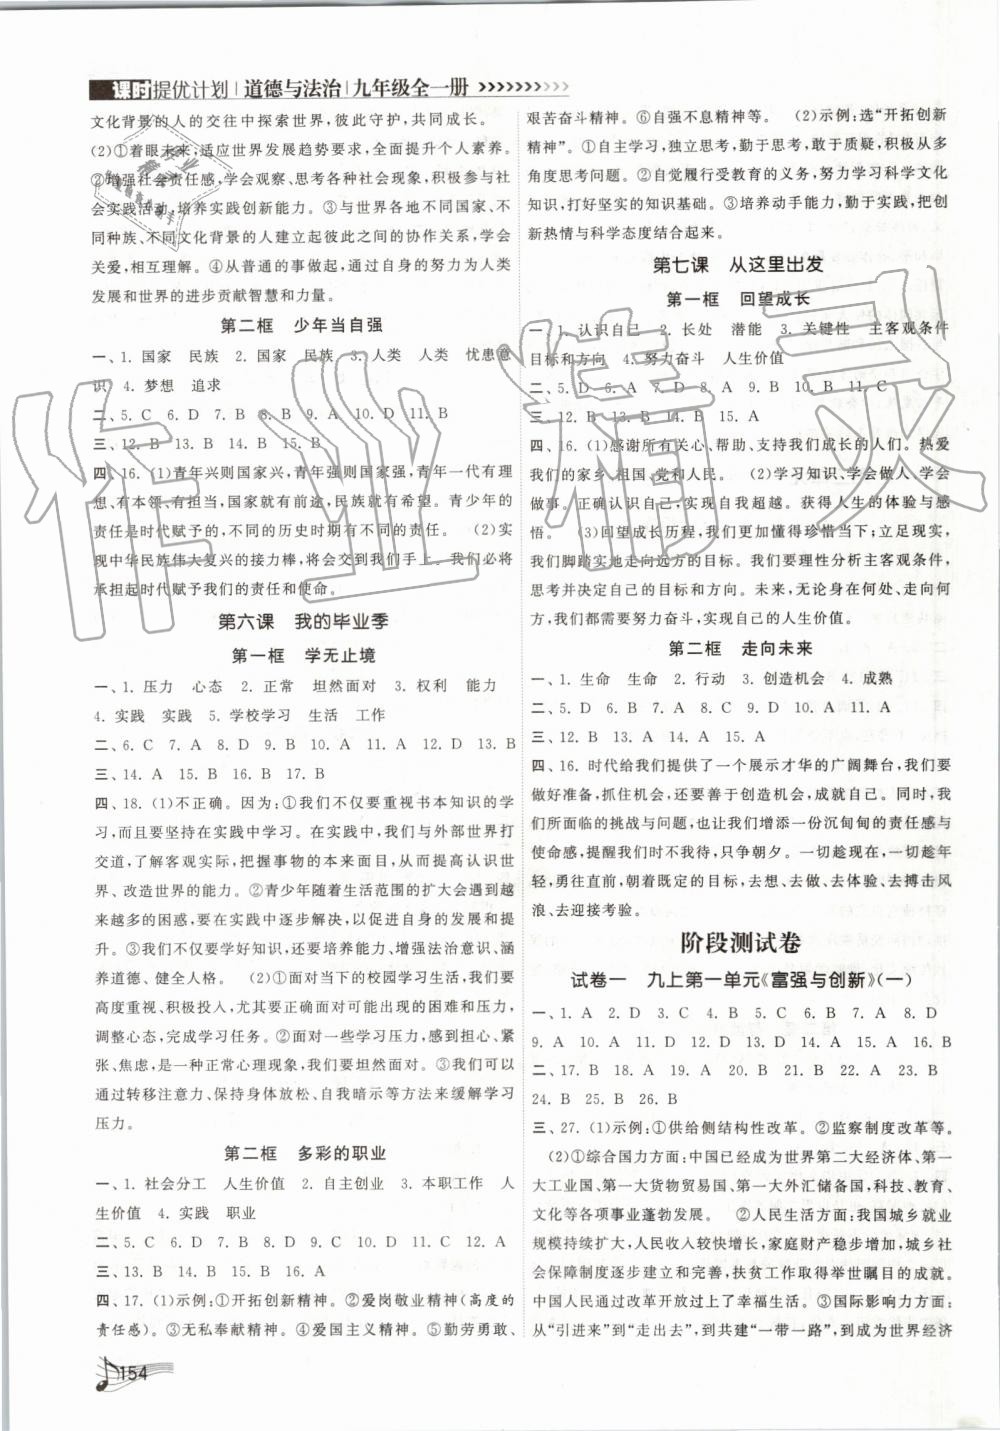 课时提优计划 | 道德与法治 | 九年级全一册
文化背景的人的交往中探索世界,彼此守护,共同成长。
(2)①着眼未来,适应世界发展趋势要求,全面提升个人素养。
②增强社会责任感,学会观察、思考各种社会现象,积极参与社
会实践活动,培养实践创新能力。③与世界各地不同国家、不
同种族、不同文化背景的人建立起彼此之间的协作关系,学会
关爱,相互理解。④从普通的事做起,通过自身的努力为人类
发展和世界的进步贡献智慧和力量。
第二框 少年当自强
一、1. 国家 民族 2. 国家 民族 3. 人类 人类 忧患意
识 4. 梦想 追求
二、5. C 6. D 7. B 8. B 9. A 10. D 11. B
三、12. B 13. B 14. B 15. B
四、16. (1)青年兴则国家兴,青年强则国家强,青年一代有理
想、有本领、有担当,国家就有前途,民族就有希望。青少年的
责任是时代赋予的,不同的历史时期有不同的责任。 (2)实
现中华民族伟大复兴的接力棒,将会交到我们手上。我们必将
承担起时代赋予我们的责任和使命。
第六课 我的毕业季
第一框 学无止境
一、1. 压力 心态 2. 正常 坦然面对 3. 权利 能力
4. 实践 实践 5. 学校学习 生活 工作
二、6. C 7. A 8. D 9. B 10. A 11. A 12. D 13. B
三、14. A 15. A 16. B 17. B
四、18. (1)不正确。因为:①我们不仅要重视书本知识的学
习,而且要坚持在实践中学习。在实践中,我们与外部世界打
交道,了解客观实际,把握事物的本来面目,从而提高认识世
界、改造世界的能力。②青少年随着生活范围的扩大会遇到越
来越多的困惑,要在实践中逐步解决,以促进自身的发展和提
升。③我们不仅要学好知识,还要培养能力,增强法治意识、涵
养道德、健全人格。 (2)①面对当下的校园学习生活,我们要
高度重视、积极投入,尤其要正确应对可能出现的困难和压力,
调整心态,完成学习任务。②面对一些学习压力,出现担心、紧
张、焦虑,是一种正常心理现象,我们要坦然面对。③我们可以
通过转移注意力、保持身体放松、自我暗示等方法来缓解学习
压力。
第二框 多彩的职业
一、1. 社会分工 人生价值 2. 自主创业 3. 本职工作 人
生价值 4. 实践 职业
二、5. C 6. D 7. C 8. D 9. B 10. D 11. C 12. A
三、13. A 14. B 15. B 16. A
四、17. (1)示例:①开拓创新精神。②爱岗敬业精神(高度的
责任感)。③无私奉献精神。④爱国主义精神。⑤勤劳勇敢、
154
艰苦奋斗精神。⑥自强不息精神等。 (2)示例:选“开拓创新
精神”。①自主学习,独立思考,勤于思考,敢于质疑,积极从多
角度思考问题。②自觉履行受教育的义务,努力学习科学文化
知识,打好坚实的知识基础。③培养动手能力,勤于实践,把创
新热情与科学态度结合起来。
第七课 从这里出发
第一框 回望成长
一、1. 认识自己 2. 长处 潜能 3. 关键性 主客观条件
目标和方向 4. 努力奋斗 人生价值
二、5. D 6. A 7. D 8. A 9. B 10. B 11. C
三、12. B 13. B 14. B 15. A
四、16. (1)感谢所有关心、帮助、支持我们成长的人们。热爱
我们的家乡、祖国、党和人民。 (2)学习知识、学会做人、学会
做事。正确认识自己,实现自我超越。获得人生的体验与感
悟。 (3)回望成长历程,我们更加懂得珍惜当下;立足现实,
我们脚踏实地走向远方的目标。我们要理性分析主客观条件,
思考并大致确定发展目标。未来,无论身在何处、走向何
方,我们都需要努力奋斗,实现自己的人生价值。
第二框 走向未来
一、1. 生命 生命 2. 行动 3. 创造机会 4. 成熟
二、5. D 6. B 7. A 8. C 9. D 10. A 11. A
三、12. B 13. A 14. A 15. A
四、16. 时代给我们提供了一个展示才华的广阔舞台,我们要
做好准备,抓住机会,还要善于创造机会,成就自己。同时,我
们所面临的挑战与问题,也让我们增添一份沉甸甸的责任感与
使命感,提醒我们时不我待,只争朝夕。一切趁现在,一切趁年
轻,勇往直前,朝着既定的目标,去想、去做、去体验、去搏击风
浪、去迎接考验。
阶段测试卷
试卷一 九上第一单元《富强与创新》(一)
一、1. A 2. D 3. C 4. B 5. C 6. B 7. A 8. D
9. A 10. A 11. D 12. D 13. D 14. A 15. A 16. B
二、17. B 18. A 19. A 20. B 21. D 22. A 23. A
24. B 25. B 26. B
三、27. (1)示例:①供给侧结构性改革。②监察制度改革等。
(2)①综合国力方面:中国已经成为世界第二大经济体、第一
大工业国、第一大货物贸易国、第一大外汇储备国,科技、教育、
文化等各项事业蓬勃发展。 ②人民生活方面:我国城乡就业
规模持续扩大,人民收入较快增长,家庭财产稳步增加,城乡社
会保障制度逐步建立和完善,扶贫工作取得举世瞩目的成就。
中国人民通过改革开放过上了幸福生活。③国际影响力方面:
从“引进来”到“走出去”,到共建“一带一路”,到成为世界经济
作业精灵